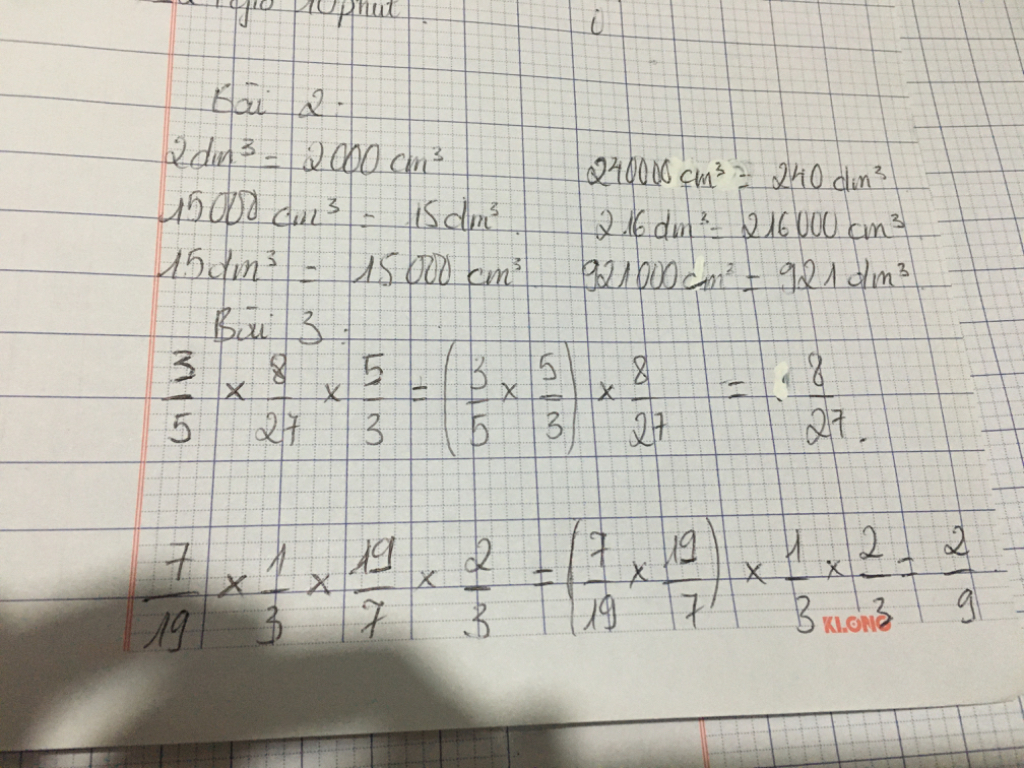 giờ 10 phút.
Bài 2.
2dm³ = 2000 cm³ 240000 cm³ = 240 dm³
15000 cm³ = 15dm³. 216dm³ = 216000 cm³
15dm³ = 15000 cm³ 921000cm³ = 921 dm³.
Bài 3:
3/5 × 8/27 × 5/3 = (3/5 × 5/3) × 8/27 = 8/27.
7/19 × 1/3 × 19/7 × 2/3 = (7/19 × 19/7) × 1/3 × 2/3 = 2/9
KLONG